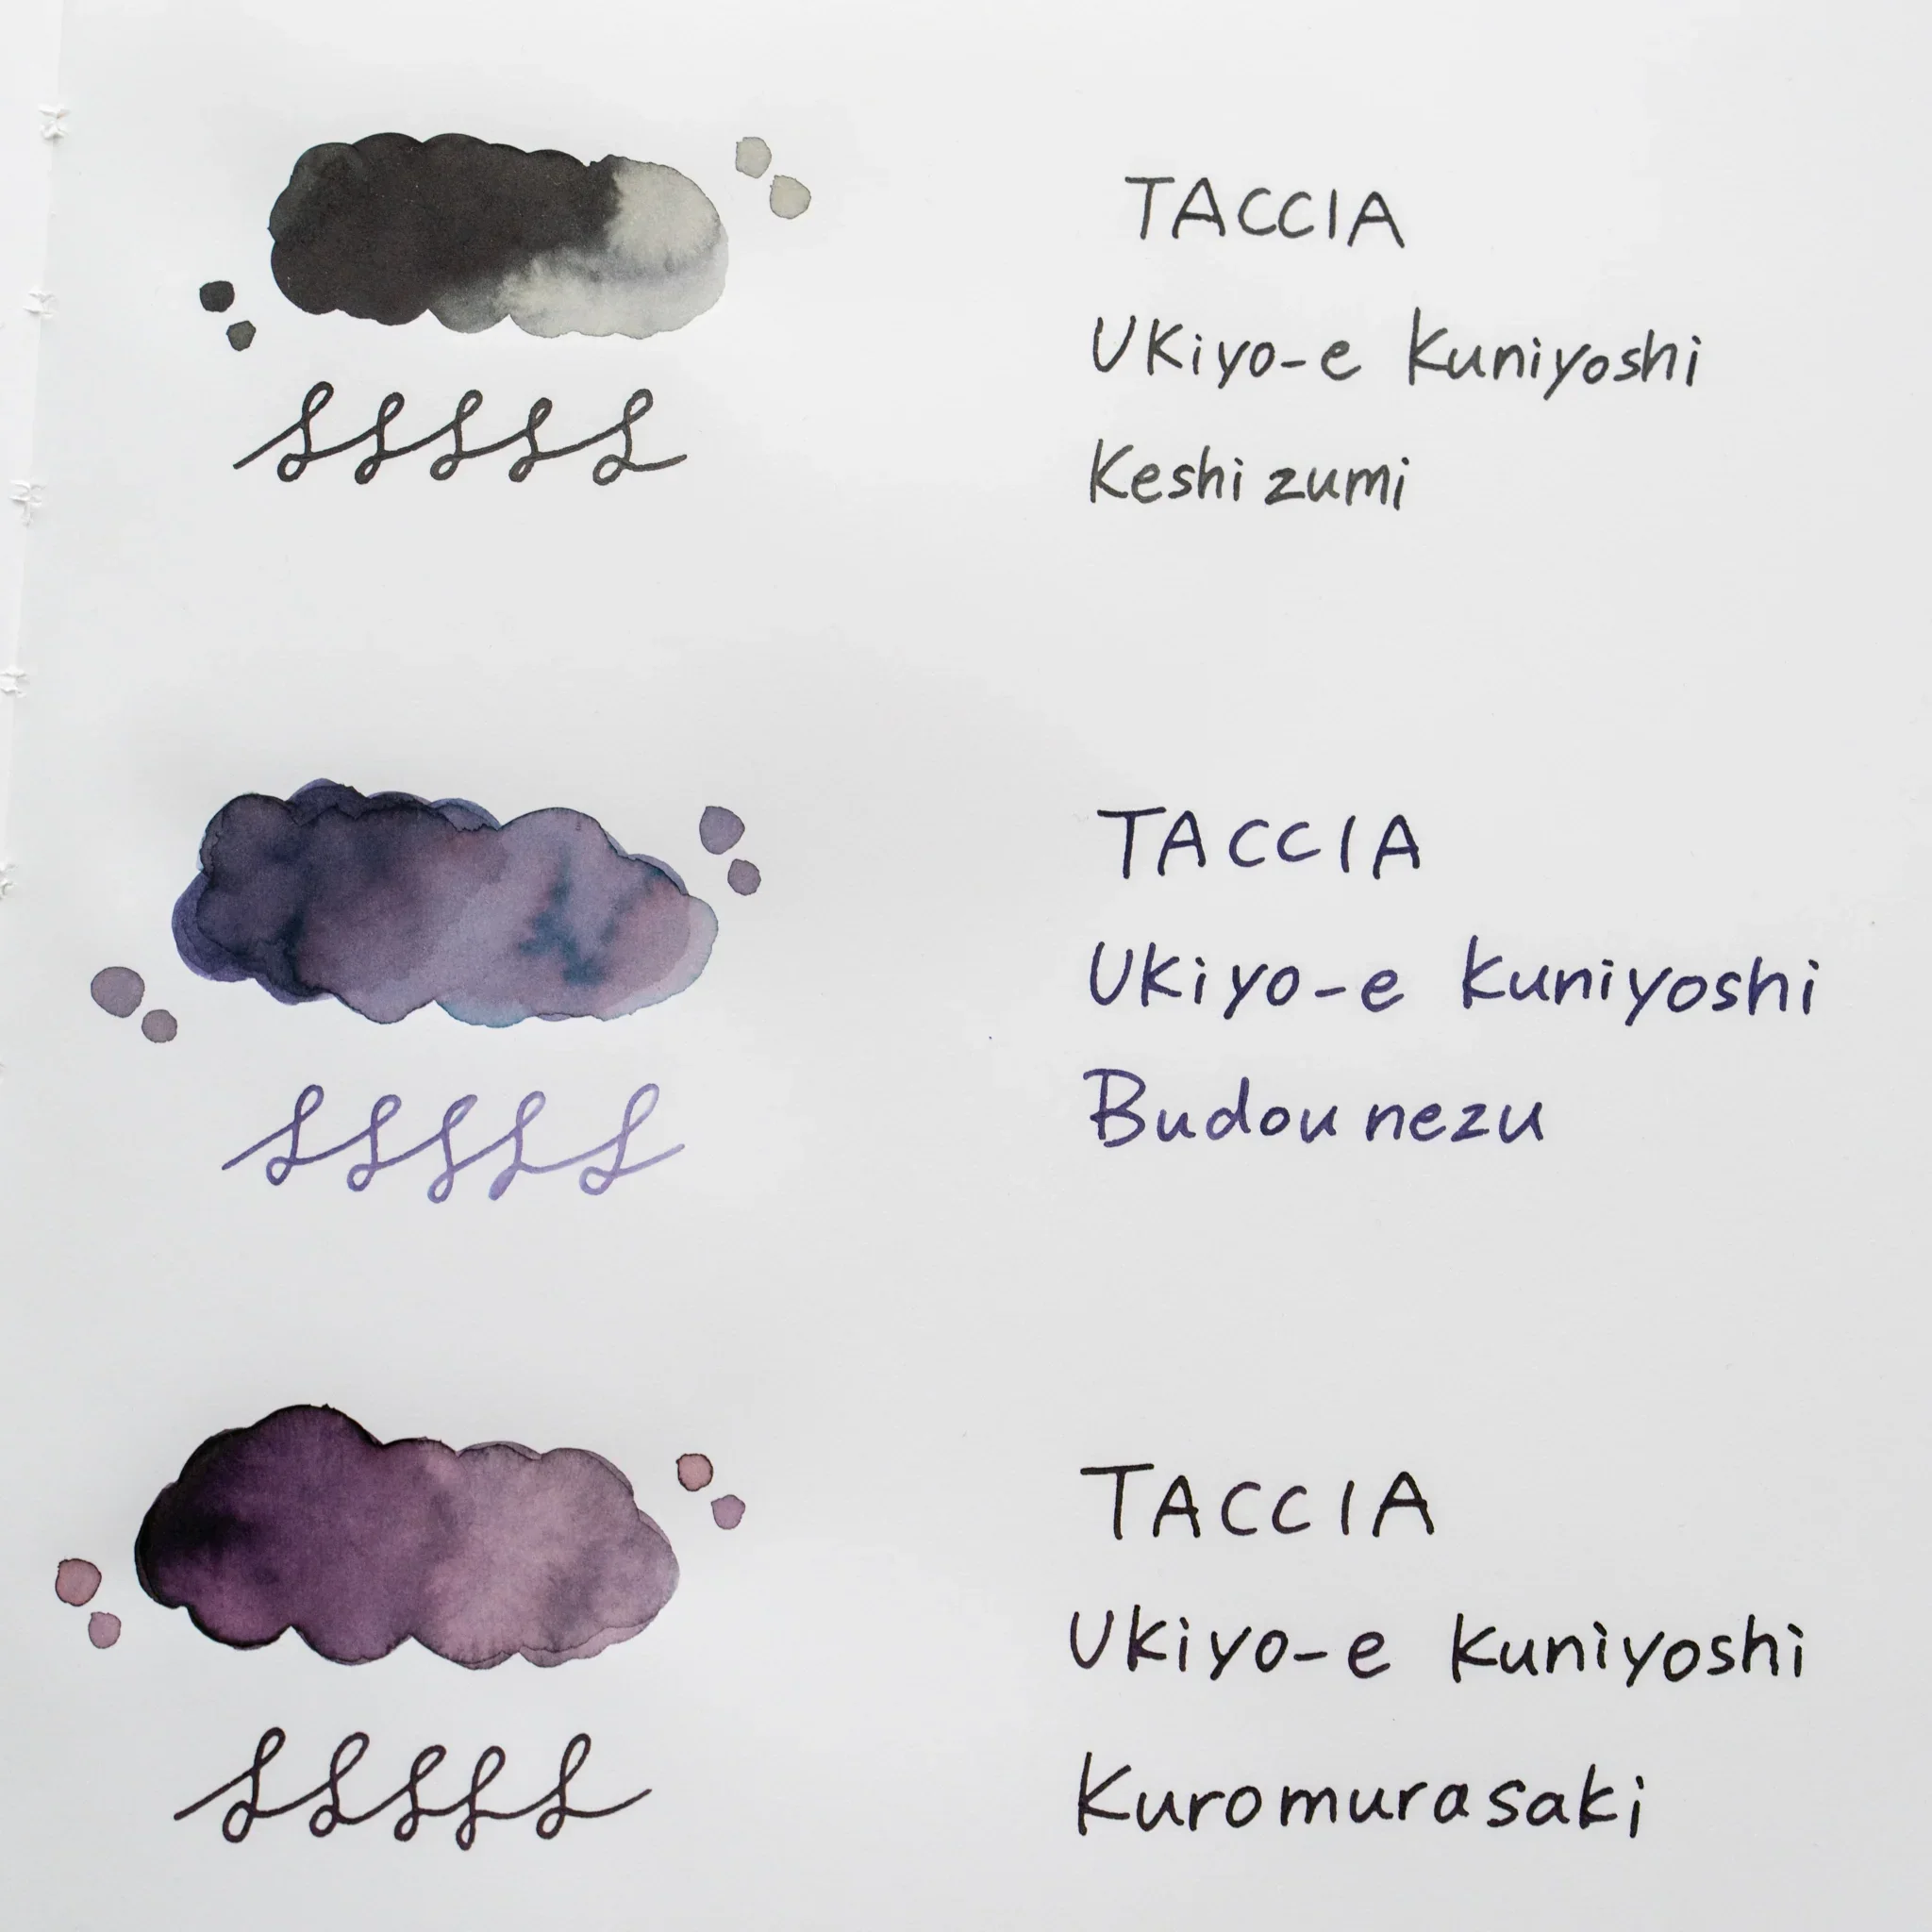 TACCIA
Ukiyo-e Kuniyoshi
Keshizumi
TACCIA
Ukiyo-e Kuniyoshi
Budounezu
TACCIA
Ukiyo-e Kuniyoshi
Kuromurasaki